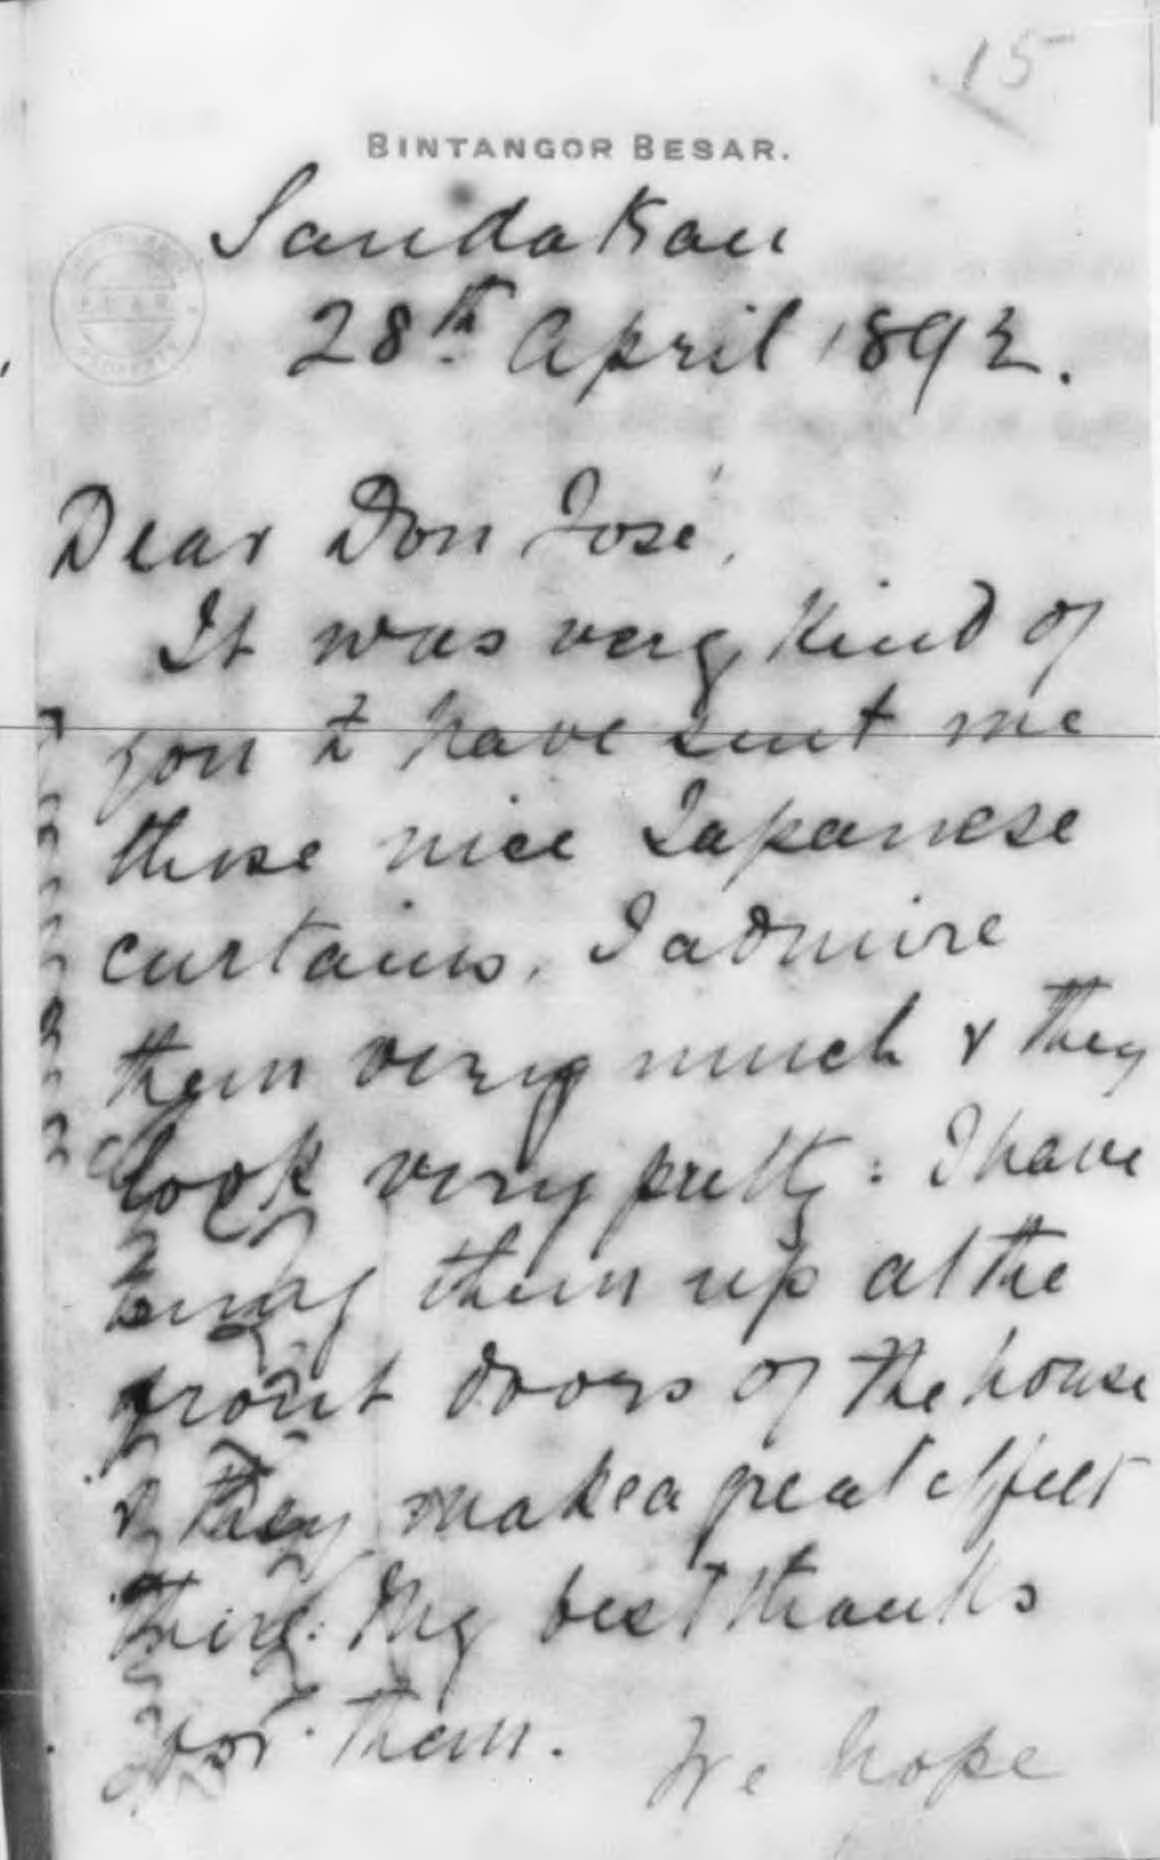 15
BINTANGOR BESAR.
Sandakan
28th April 1892.
Dear Don José,
It was very kind of
you to have sent me
those nice Japanese
curtains. I admire
them very much & they
look very pretty: I have
hung them up at the
front doors of the house
& they make a great effect
there. My best thanks
for them. We hope